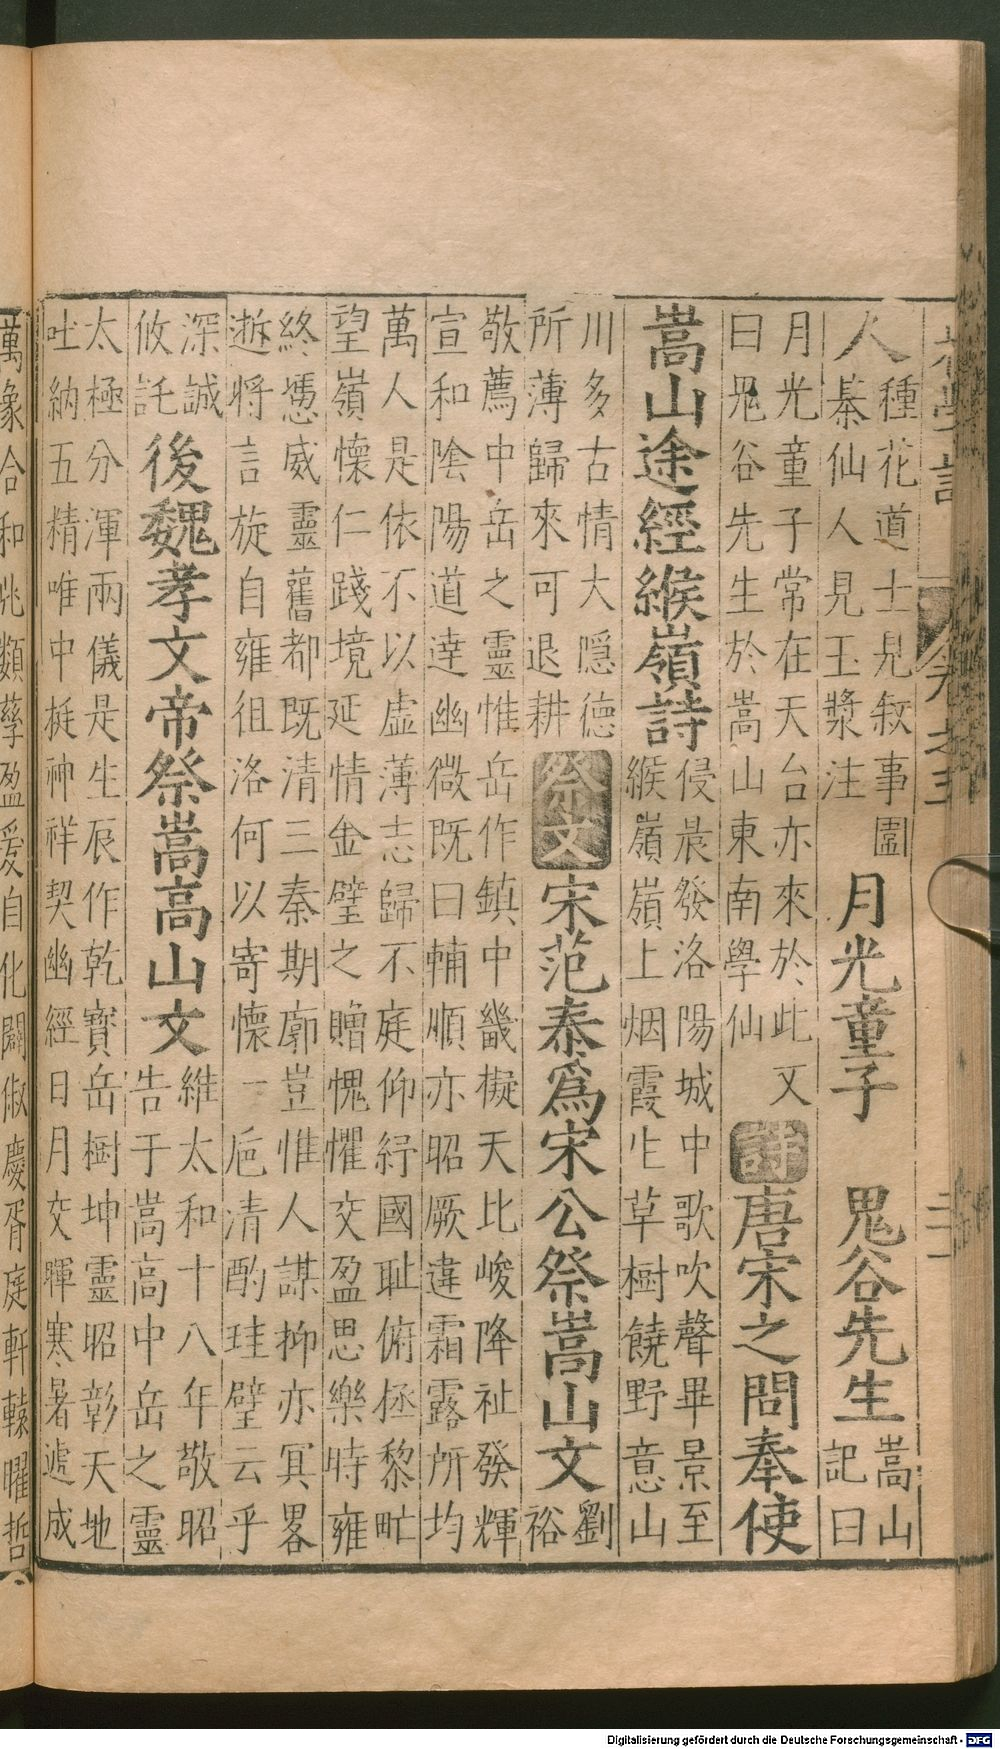 種花道士見敘事圖
人綦仙人見玉漿注
月光童子
鬼谷先生
嵩山
記曰
月光童子常在天台亦來於此又
曰鬼谷先生於嵩山東南學仙
詩
唐宋之問奉使
嵩山途經緱嶺詩
侵晨發洛陽城中歌吹聲畢景至
緱嶺嶺上烟霞生草樹饒野意山
川多古情大隱德
所薄歸來可退耕
祭文
宋范泰爲宋公祭嵩山文
劉
裕
敬薦中岳之靈惟岳作鎮中畿擬天比峻降祉發輝
宣和陰陽道達幽微既曰輔順亦昭厥違霜露所均
萬人是依不以虛薄志歸不庭仰紓國耻俯拯黎甿
望嶺懷仁踐境延情金璧之贈愧懼交盈思樂時雍
終憑威靈舊都既清三秦期廓豈惟人謀抑亦冥畧
逝將言旋自雍徂洛何以寄懷一巵清酌珪璧云乎
深誠
攸託
後魏孝文帝祭嵩高山文
維太和十八年敬昭
告于嵩高中岳之靈
太極分渾兩儀是生辰作乾寳岳樹坤靈昭彰天地
吐納五精唯中挺神祥契幽經日月交暉寒暑遞成
萬象合和兆類孳盈爰自化闢俶慶胥庭軒轅曜哲
卷之五
Digitalisierung gefördert durch die Deutsche Forschungsgemeinschaft - DFG